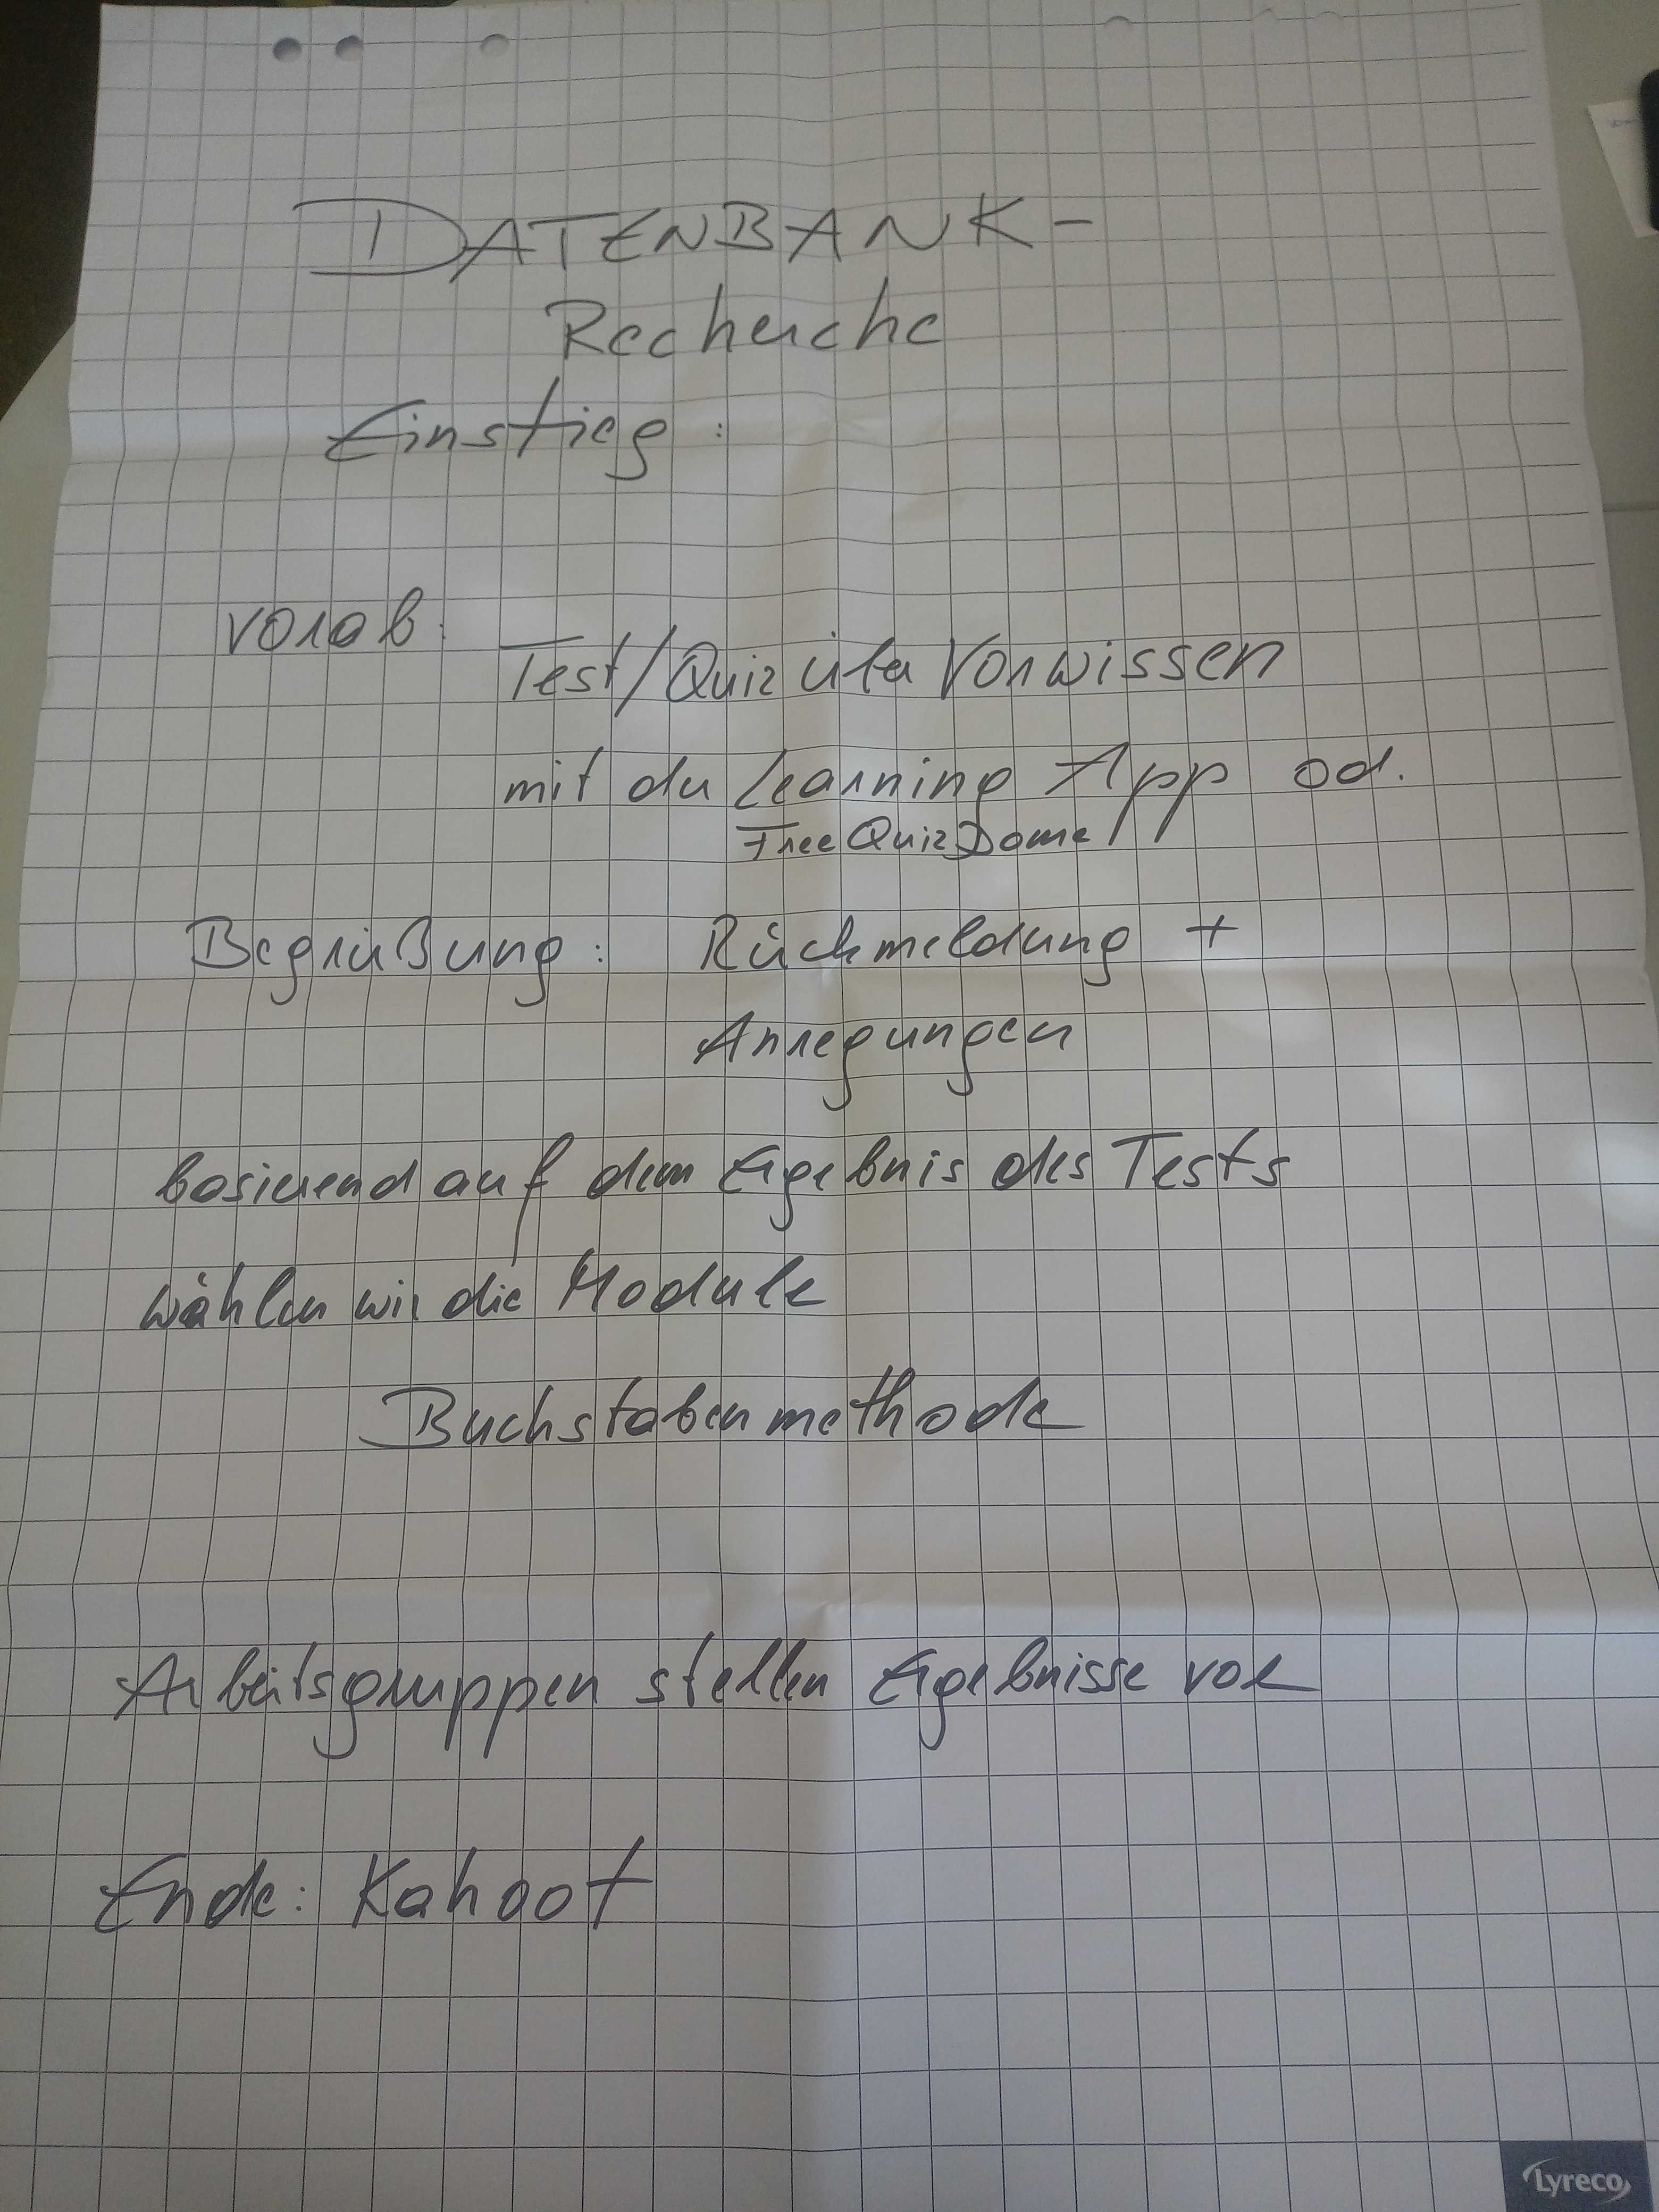 DATENBANK-
Recherche
Einstieg:
vorab:
Test/Quiz über Vorwissen
mit der Learning App od.
Free Quiz Dome
Begrüßung: Rückmeldung +
Anregungen
basierend auf dem Ergebnis des Tests
wählen wir die Module
Buchstabenmethode
Arbeitsgruppen stellen Ergebnisse vor
Ende: Kahoot
Lyreco